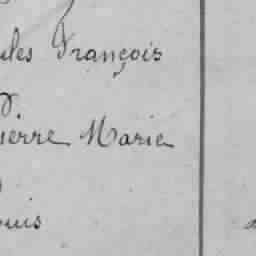 ules François
ierre Marie
ouis